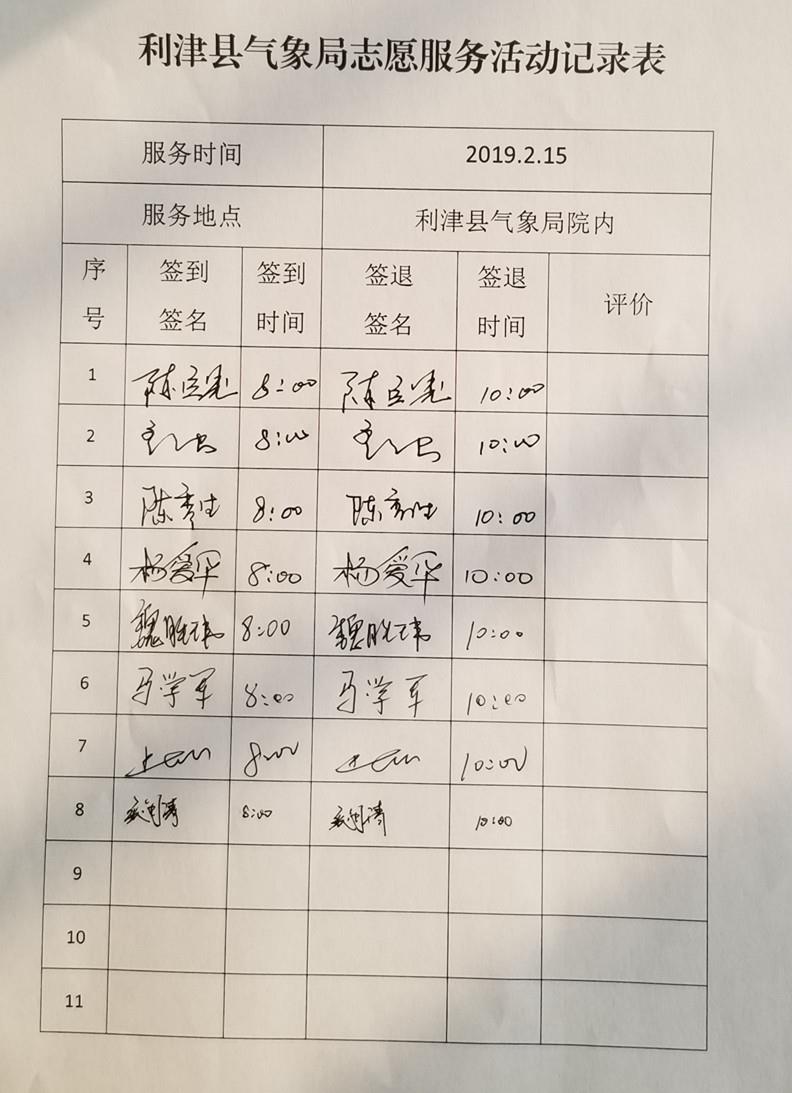 利津县气象局志愿服务活动记录表
服务时间 2019.2.15
服务地点 利津县气象局院内
序号 签到签名 签到时间 签退签名 签退时间 评价
1 8:00 10:00
2 8:00 10:00
3 陈秀生 8:00 陈秀生 10:00
4 杨爱华 8:00 杨爱华 10:00
5 魏胜玮 8:00 魏胜玮 10:00
6 马学军 8:00 马学军 10:00
7 8:00 10:00
8 8:00 10:00
9
10
11